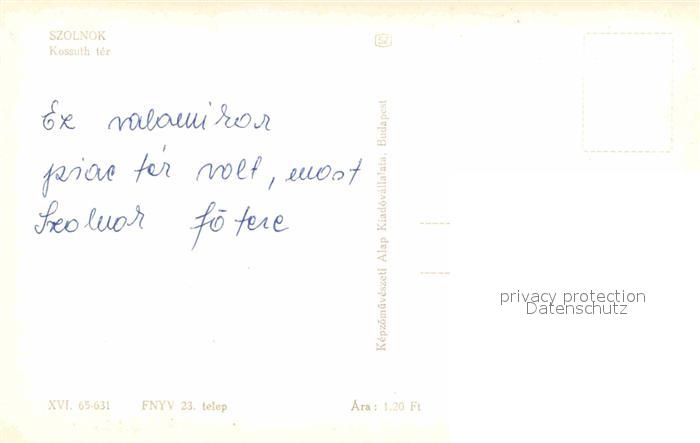 SZOLNOK
Kossuth tér
Ez valamikor
piac tér volt, most
Szolnok főtere
Képzőművészeti Alap Kiadóvállalata, Budapest
privacy protection
Datenschutz
XVI. 65-631 FNYV 23. telep Ára: 1.20 Ft